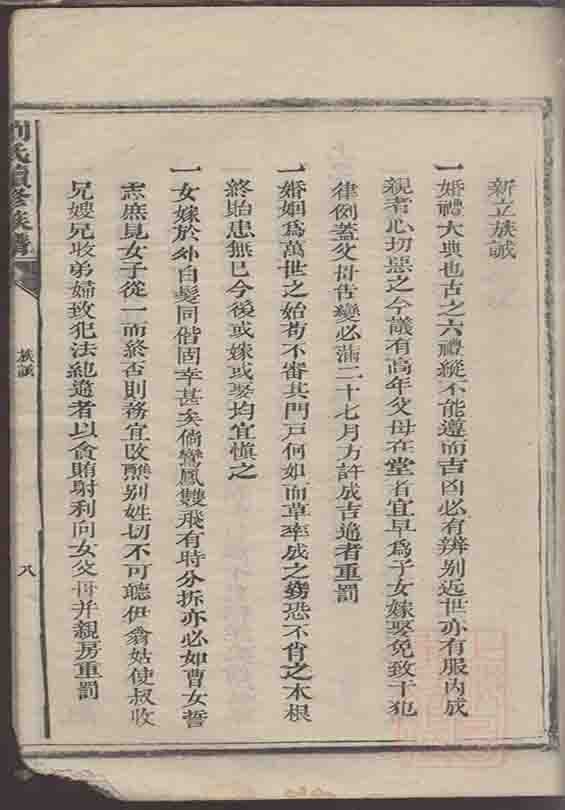 新立族誡
一婚禮大典也古之六禮縱不能遵而吉凶必有辨别近世亦有服内成
親者心切惡之今議有高年父母在堂者宜早為子女嫁娶免致干犯
律例蓋父母告變必滿二十七月方許成吉違者重罰
一婚姻為萬世之始苟不審其門户何如而草率成之竊恐不肖之木根
終貽患無已今後或嫁或娶均宜慎之
一女嫁於外白髮同偕固幸甚矣倘鸞鳳雙飛有時分拆亦必如曹女誓
志庶見女子從一而終否則務宜改醮别姓切不可聽伊翁姑使叔收
兄嫂兄收弟婦致犯法紀違者以貪賄射利向女父母并親房重罰
劉氏續修族譜
族誡
八